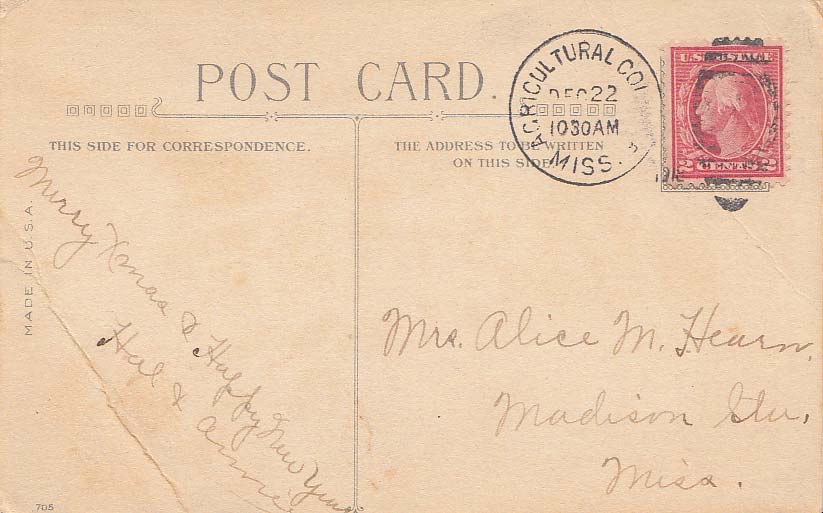 POST CARD.
THIS SIDE FOR CORRESPONDENCE.
THE ADDRESS TO BE WRITTEN
ON THIS SIDE
MADE IN U.S.A.
AGRICULTURAL COL
DEC 22
1030AM
MISS.
U.S. POSTAGE
2 CENTS 2
Merry Xmas & Happy New Year
Hal & Annie
Mrs. Alice M. Hearn,
Madison Sta,
Miss.
705